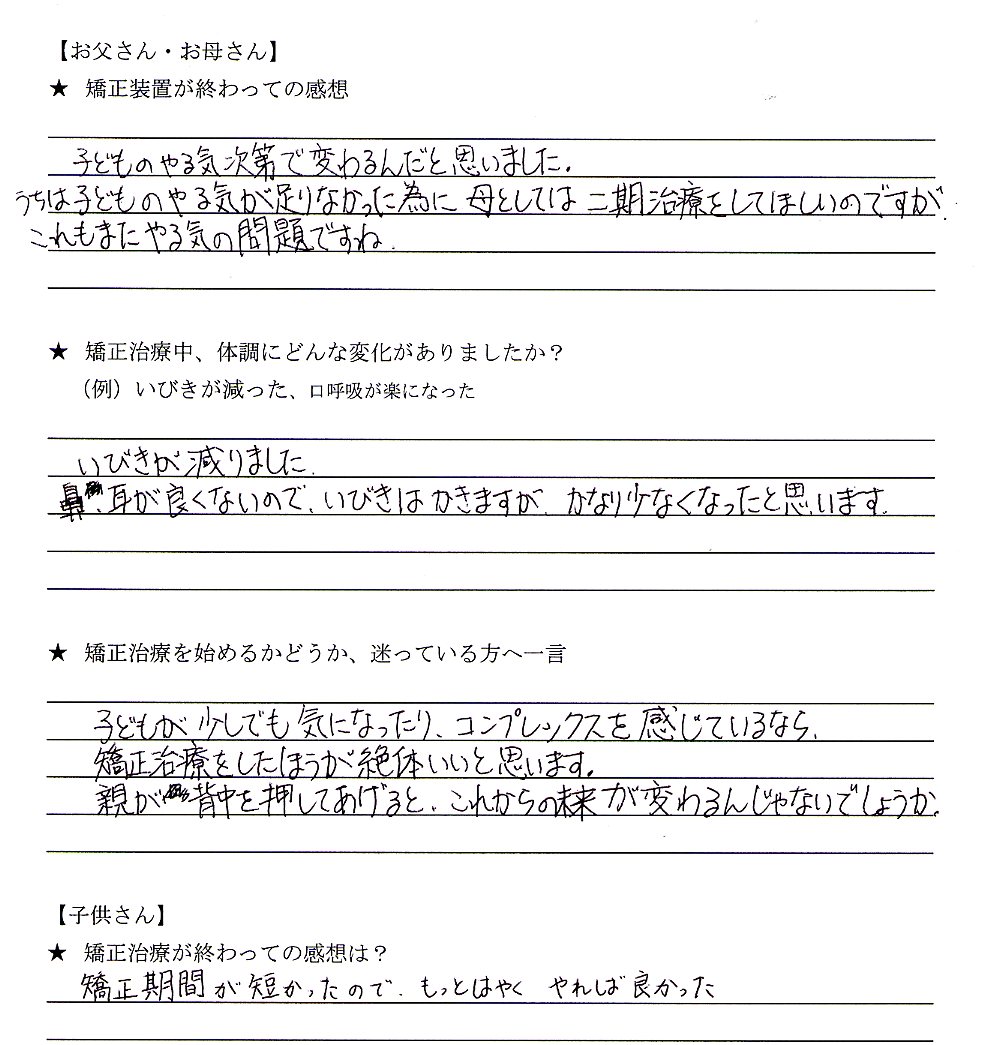 【お父さん・お母さん】
★ 矯正装置が終わっての感想
子どものやる気次第で変わるんだと思いました。
うちは子どものやる気が足りなかった為に母としては二期治療をしてほしいのですが、
これもまたやる気の問題ですね。
★ 矯正治療中、体調にどんな変化がありましたか？
（例）いびきが減った、口呼吸が楽になった
いびきが減りました。
鼻、耳が良くないので、いびきはかきますが、かなり少なくなったと思います。
★ 矯正治療を始めるかどうか、迷っている方へ一言
子どもが少しでも気になったり、コンプレックスを感じているなら、
矯正治療をしたほうが絶体いいと思います。
親が背中を押してあげると、これからの未来が変わるんじゃないでしょうか。
【子供さん】
★ 矯正治療が終わっての感想は？
矯正期間が短かったので、もっとはやく やれば良かった